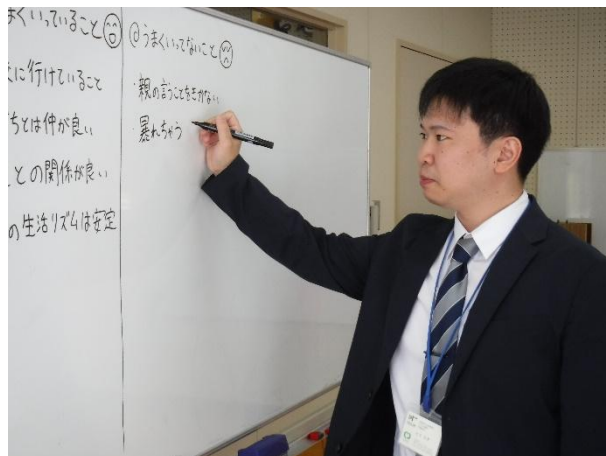 まくいっていること
に行けていること
ちとは仲が良い
との関係が良い
の生活リズムは安定
@うまくいってないこと
・親の言うことをきかない
・暴れちゃう